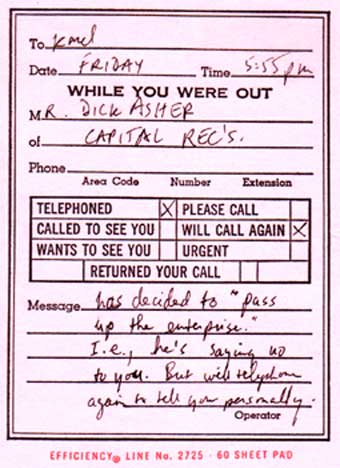 To Kmel
Date FRIDAY Time 5:55 pm
WHILE YOU WERE OUT
MR. DICK ASHER
of CAPITAL REC'S.
Phone
Area Code Number Extension
TELEPHONED X PLEASE CALL
CALLED TO SEE YOU WILL CALL AGAIN X
WANTS TO SEE YOU URGENT
RETURNED YOUR CALL
Message has decided to "pass
up the enterprise."
I.e., he's saying no
to you. But will telephone
again to tell you personally.
Operator
EFFICIENCY® LINE No. 2725 - 60 SHEET PAD